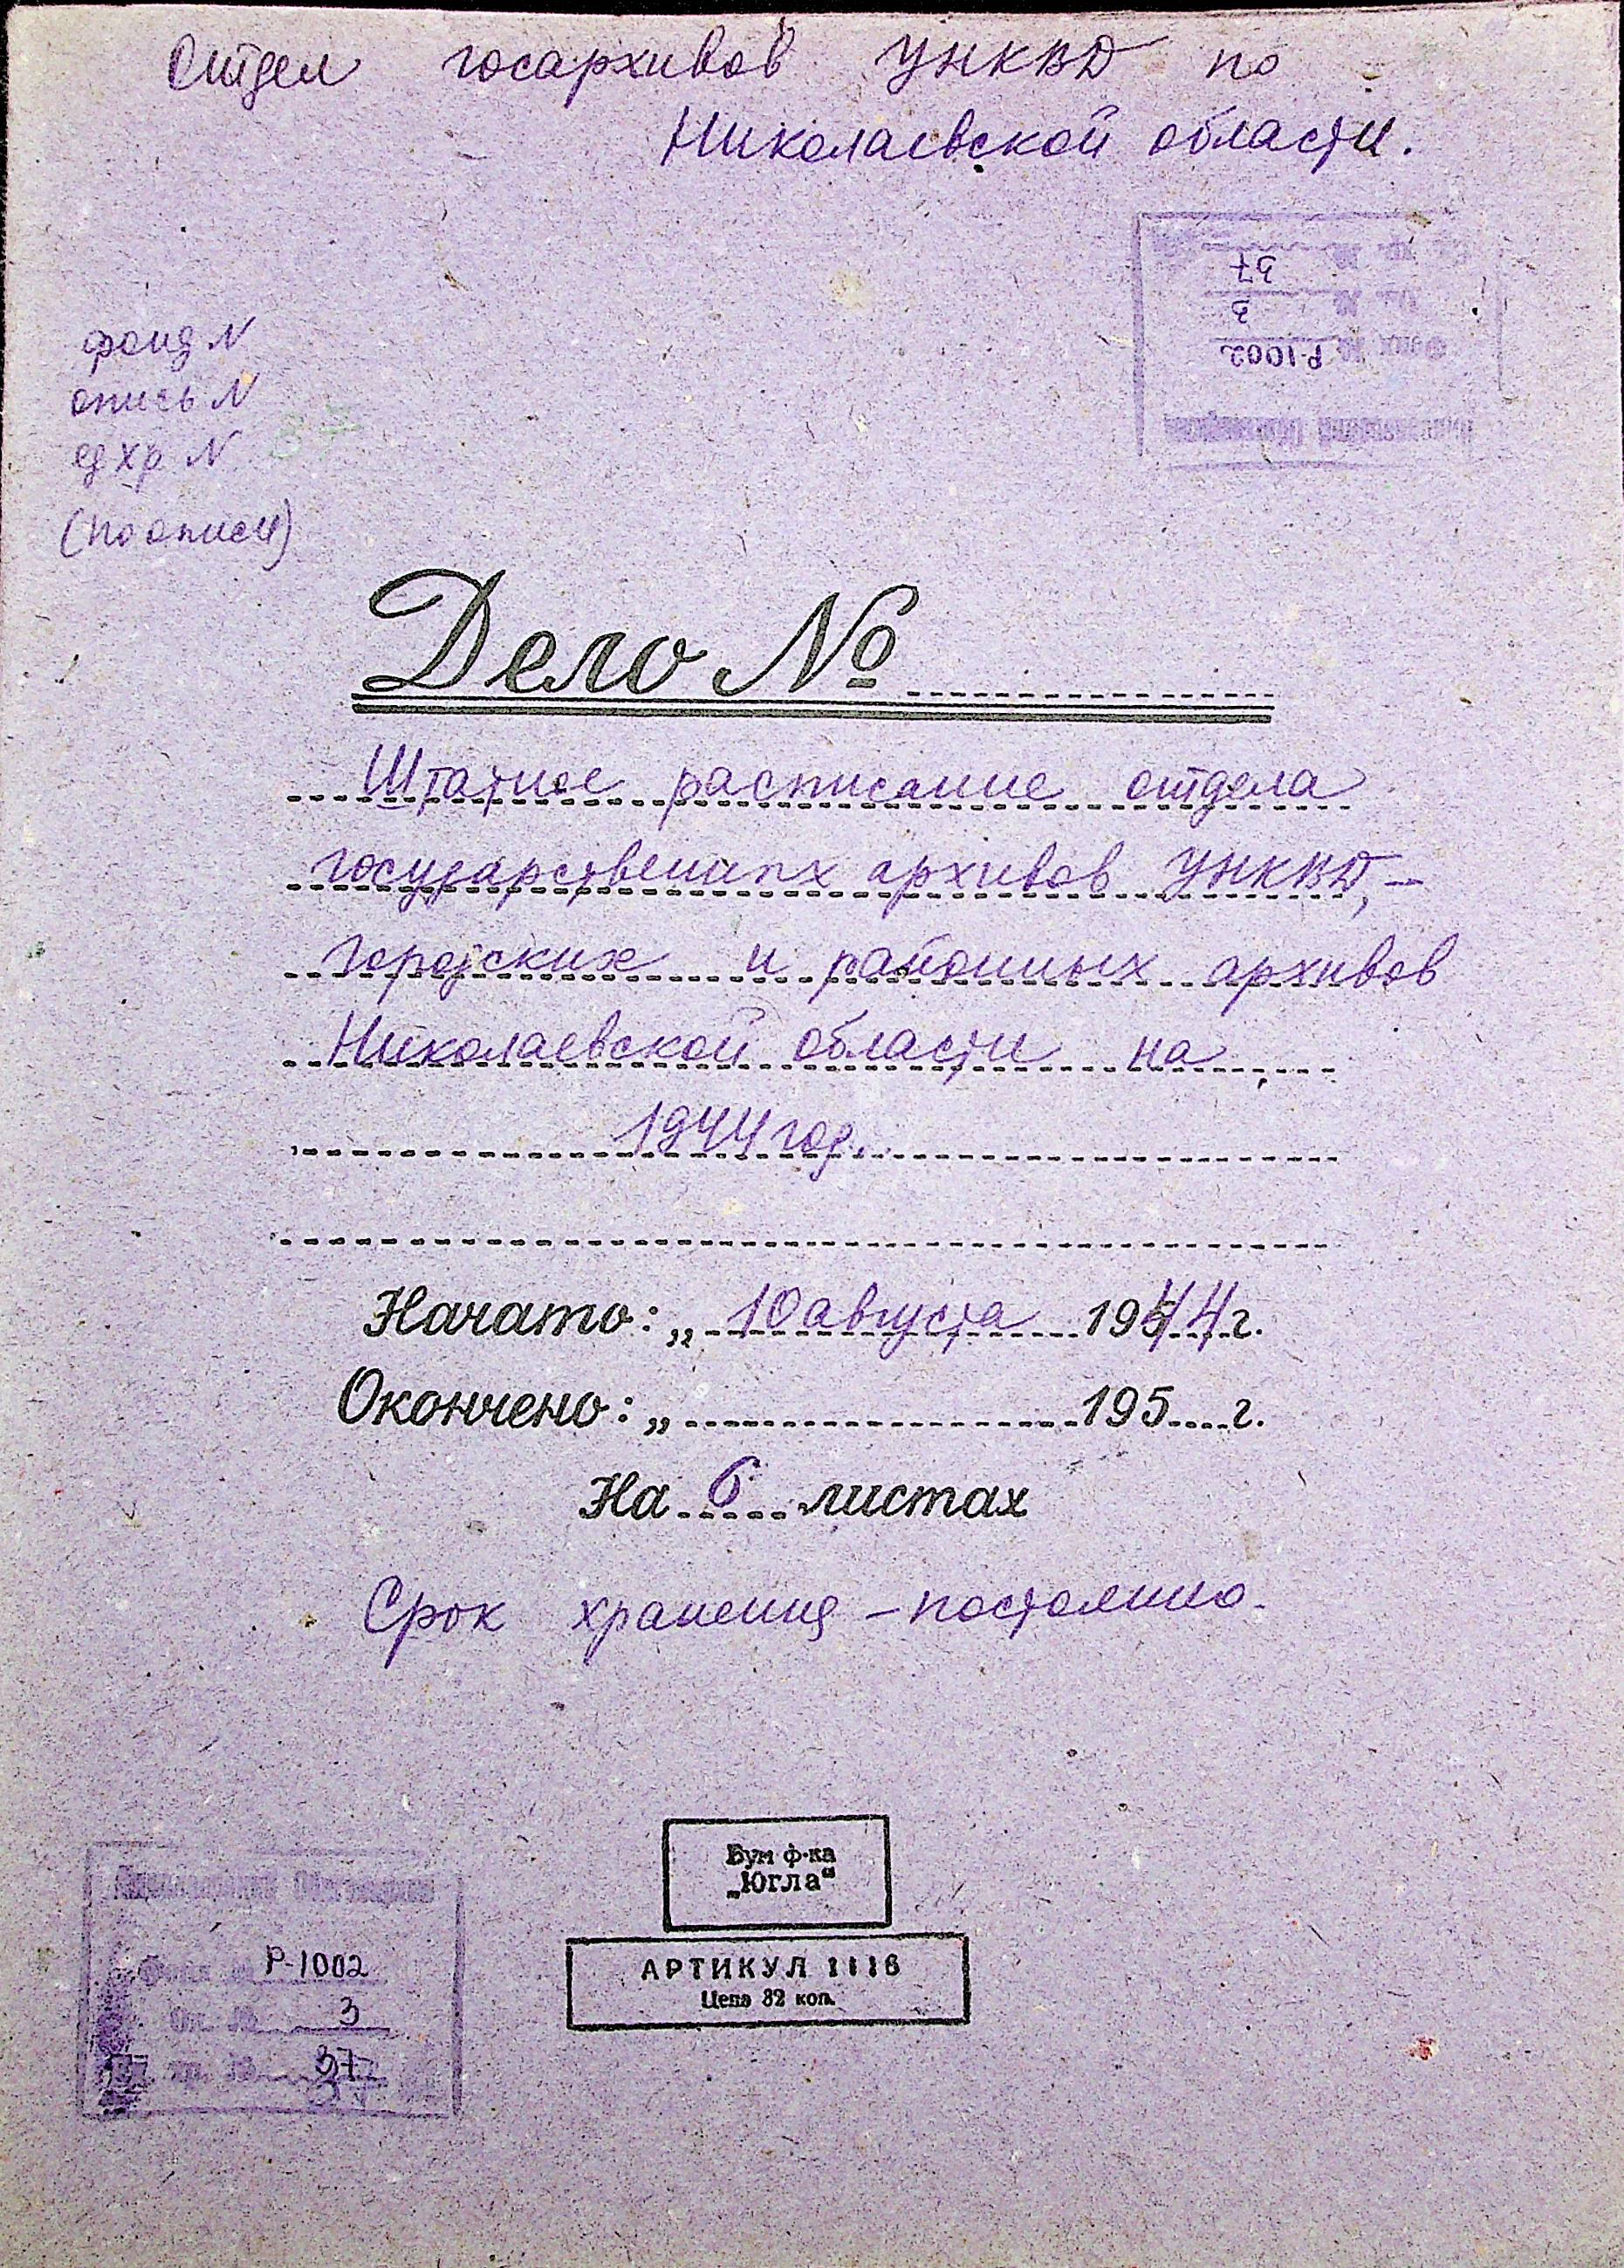 Отдел госархивов УНКВД по
Николаевской области.
37
3
Р-1002
фонд N
опись N
ед хр. N 37
(по описи)
Дело №
Штатное расписание отдела
государственных архивов УНКВД, –
городских и районных архивов
Николаевской области на
1944 год.
Начато: „ 10 августа 1944 г.
Окончено: „ 195 г.
На 6 листах
Срок хранения – постоянно.
Бум ф-ка
„Югла“
АРТИКУЛ 1116
Цена 32 коп.
Фонд № Р-1002
Оп. № 3
хр. № 37
37